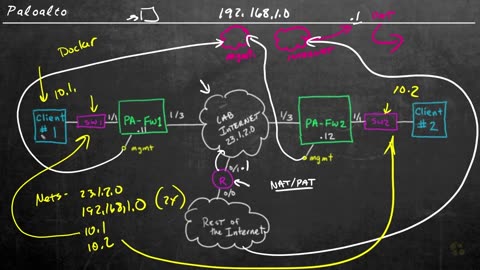 Paloalto
192.168.1.0
.1
mgmt
Docker
10.1.
10.2
Client
# 1
SW1
1/1
PA-FW1
.11
1/3
mgmt
LAB
INTERNET
23.1.2.0
1/3
PA-FW2
.12
1/1
mgmt
SW2
Client
# 2
0/1
.1
R
NAT/PAT
0/0
REST of
the Internet
Nets-
23.1.2.0
192.168.1.0 (2x)
10.1
10.2